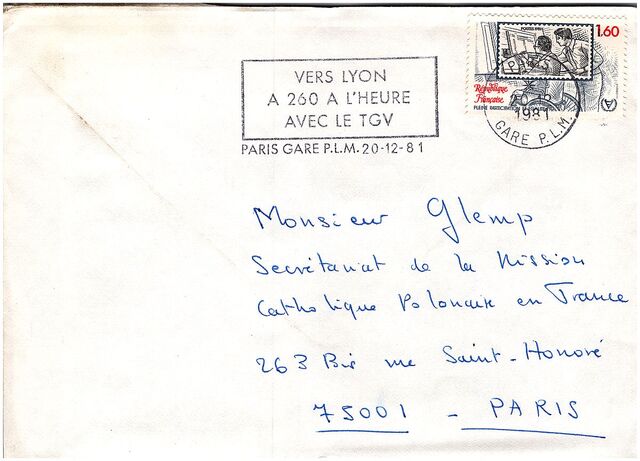 VERS LYON
A 260 A L'HEURE
AVEC LE TGV
PARIS GARE P.L.M. 20-12-81
1.60
République
Française
1981
GARE P.L.M.
Monsieur Glemp
Secrétariat de la Mission
Catholique Polonaise en France
263 Bis rue Saint-Honoré
75001 - PARIS